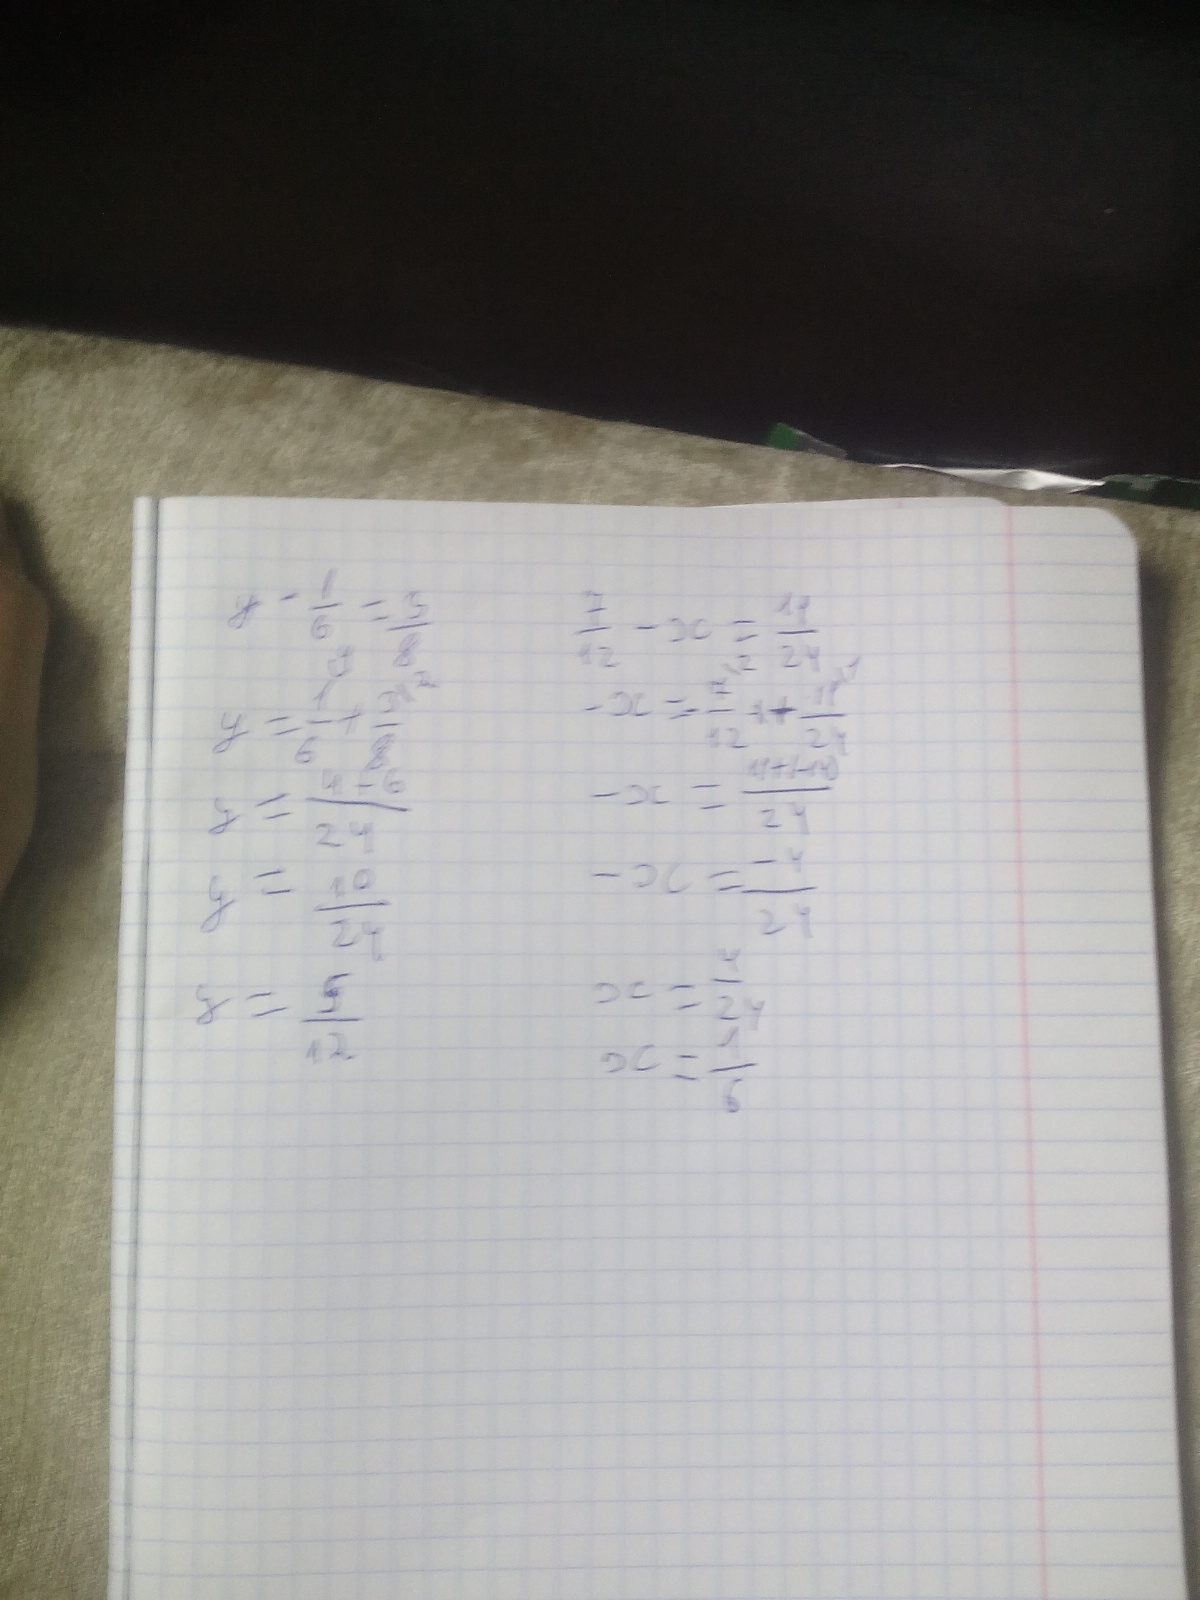 y - 1/6 = 3/8
y = 1/6 + 3/8
y = 4+6/24
y = 10/24
y = 5/12
7/12 - x = 11/24
-x = - 7/12 + 11/24
-x = /24
-x = -4/24
x = 4/24
x = 1/6